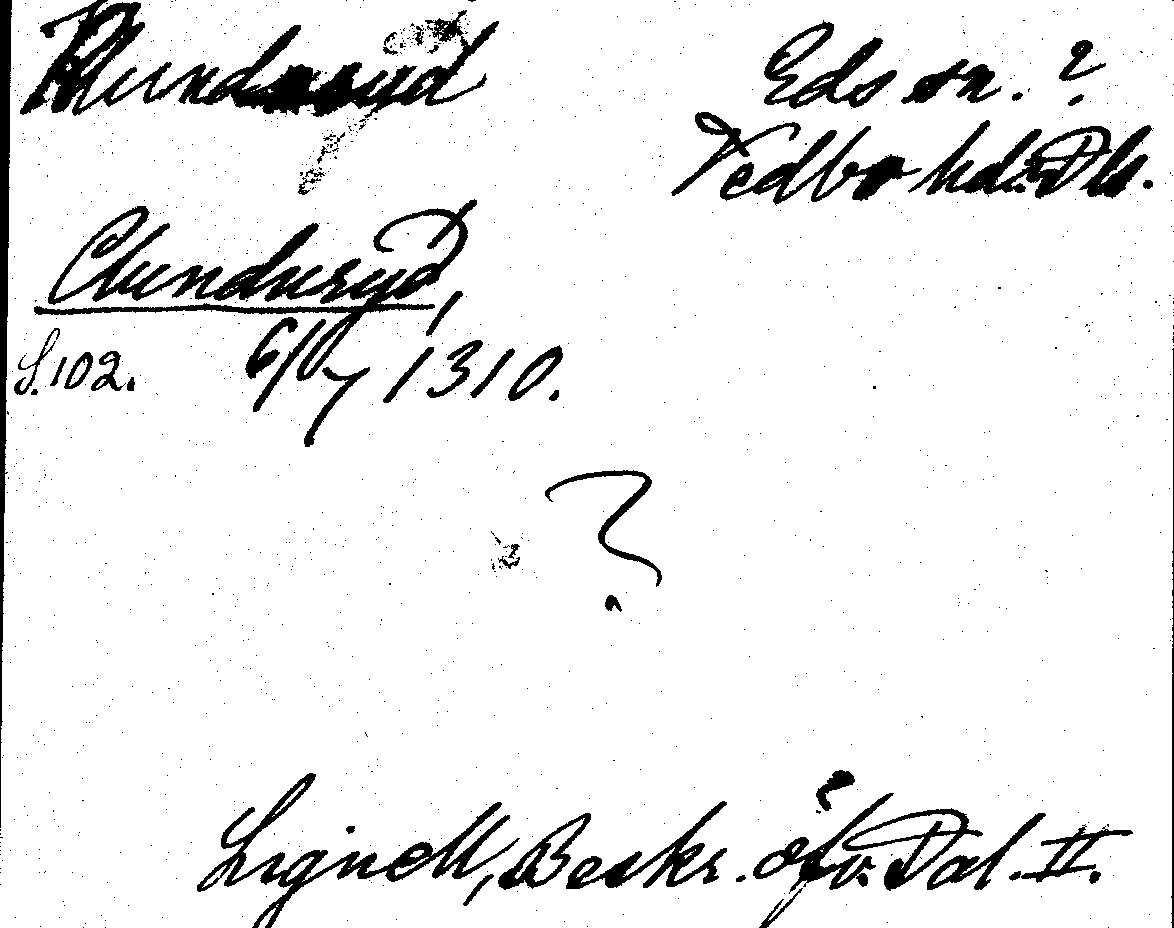 Klundsryd Eds sn. ?
Vedbo hd. Dls.
Clunduryd,
S. 102. 6/10 1310.
?
Lignell, Beskr. öfv. Dal. II.